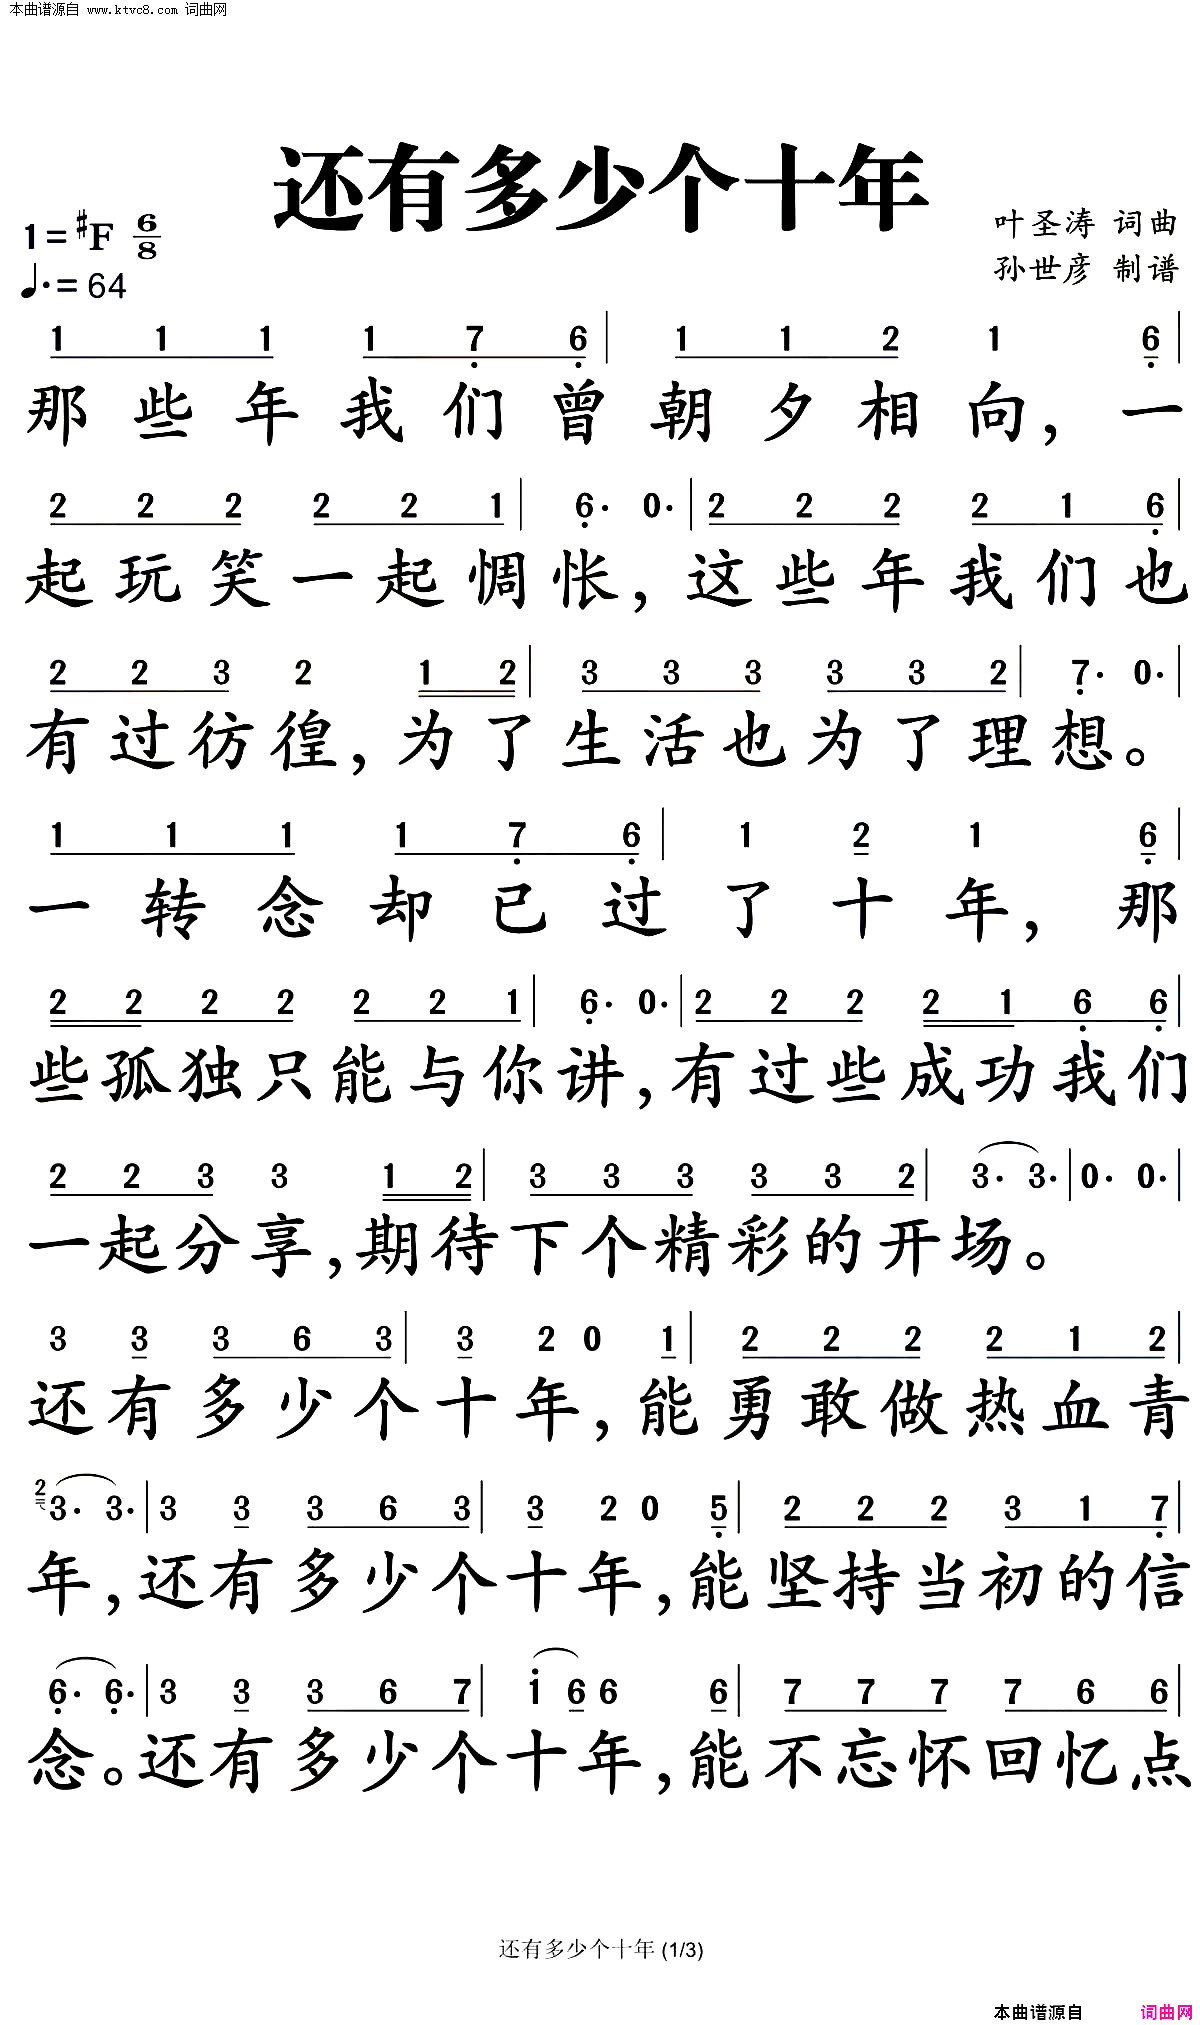 本曲谱源自 www.ktvc8.com 词曲网
还有多少个十年
1=#F 6/8
♩.=64
叶圣涛 词曲
孙世彦 制谱
1 1 1 1 7 6 | 1 1 2 1 6 |
那些年我们曾朝夕相向,一
2 2 2 2 2 1 | 6. 0. | 2 2 2 2 1 6 |
起玩笑一起惆怅,这些年我们也
2 2 3 2 1 2 | 3 3 3 3 3 2 | 7. 0. |
有过彷徨,为了生活也为了理想。
1 1 1 1 7 6 | 1 2 1 6 |
一转念却已过了十年,那
2 2 2 2 2 2 1 | 6. 0. | 2 2 2 2 1 6 6 |
些孤独只能与你讲,有过些成功我们
2 2 3 3 1 2 | 3 3 3 3 3 2 | 3. 3. | 0. 0. |
一起分享,期待下个精彩的开场。
3 3 3 6 3 | 3 2 0 1 | 2 2 2 2 1 2 |
还有多少个十年,能勇敢做热血青
2 3. 3. | 3 3 3 6 3 | 3 2 0 5 | 2 2 2 3 1 7 |
年,还有多少个十年,能坚持当初的信
6. 6. | 3 3 3 6 7 | 1 6 6 6 | 7 7 7 7 6 6 |
念。还有多少个十年,能不忘怀回忆点
还有多少个十年 (1/3)
本曲谱源自 词曲网